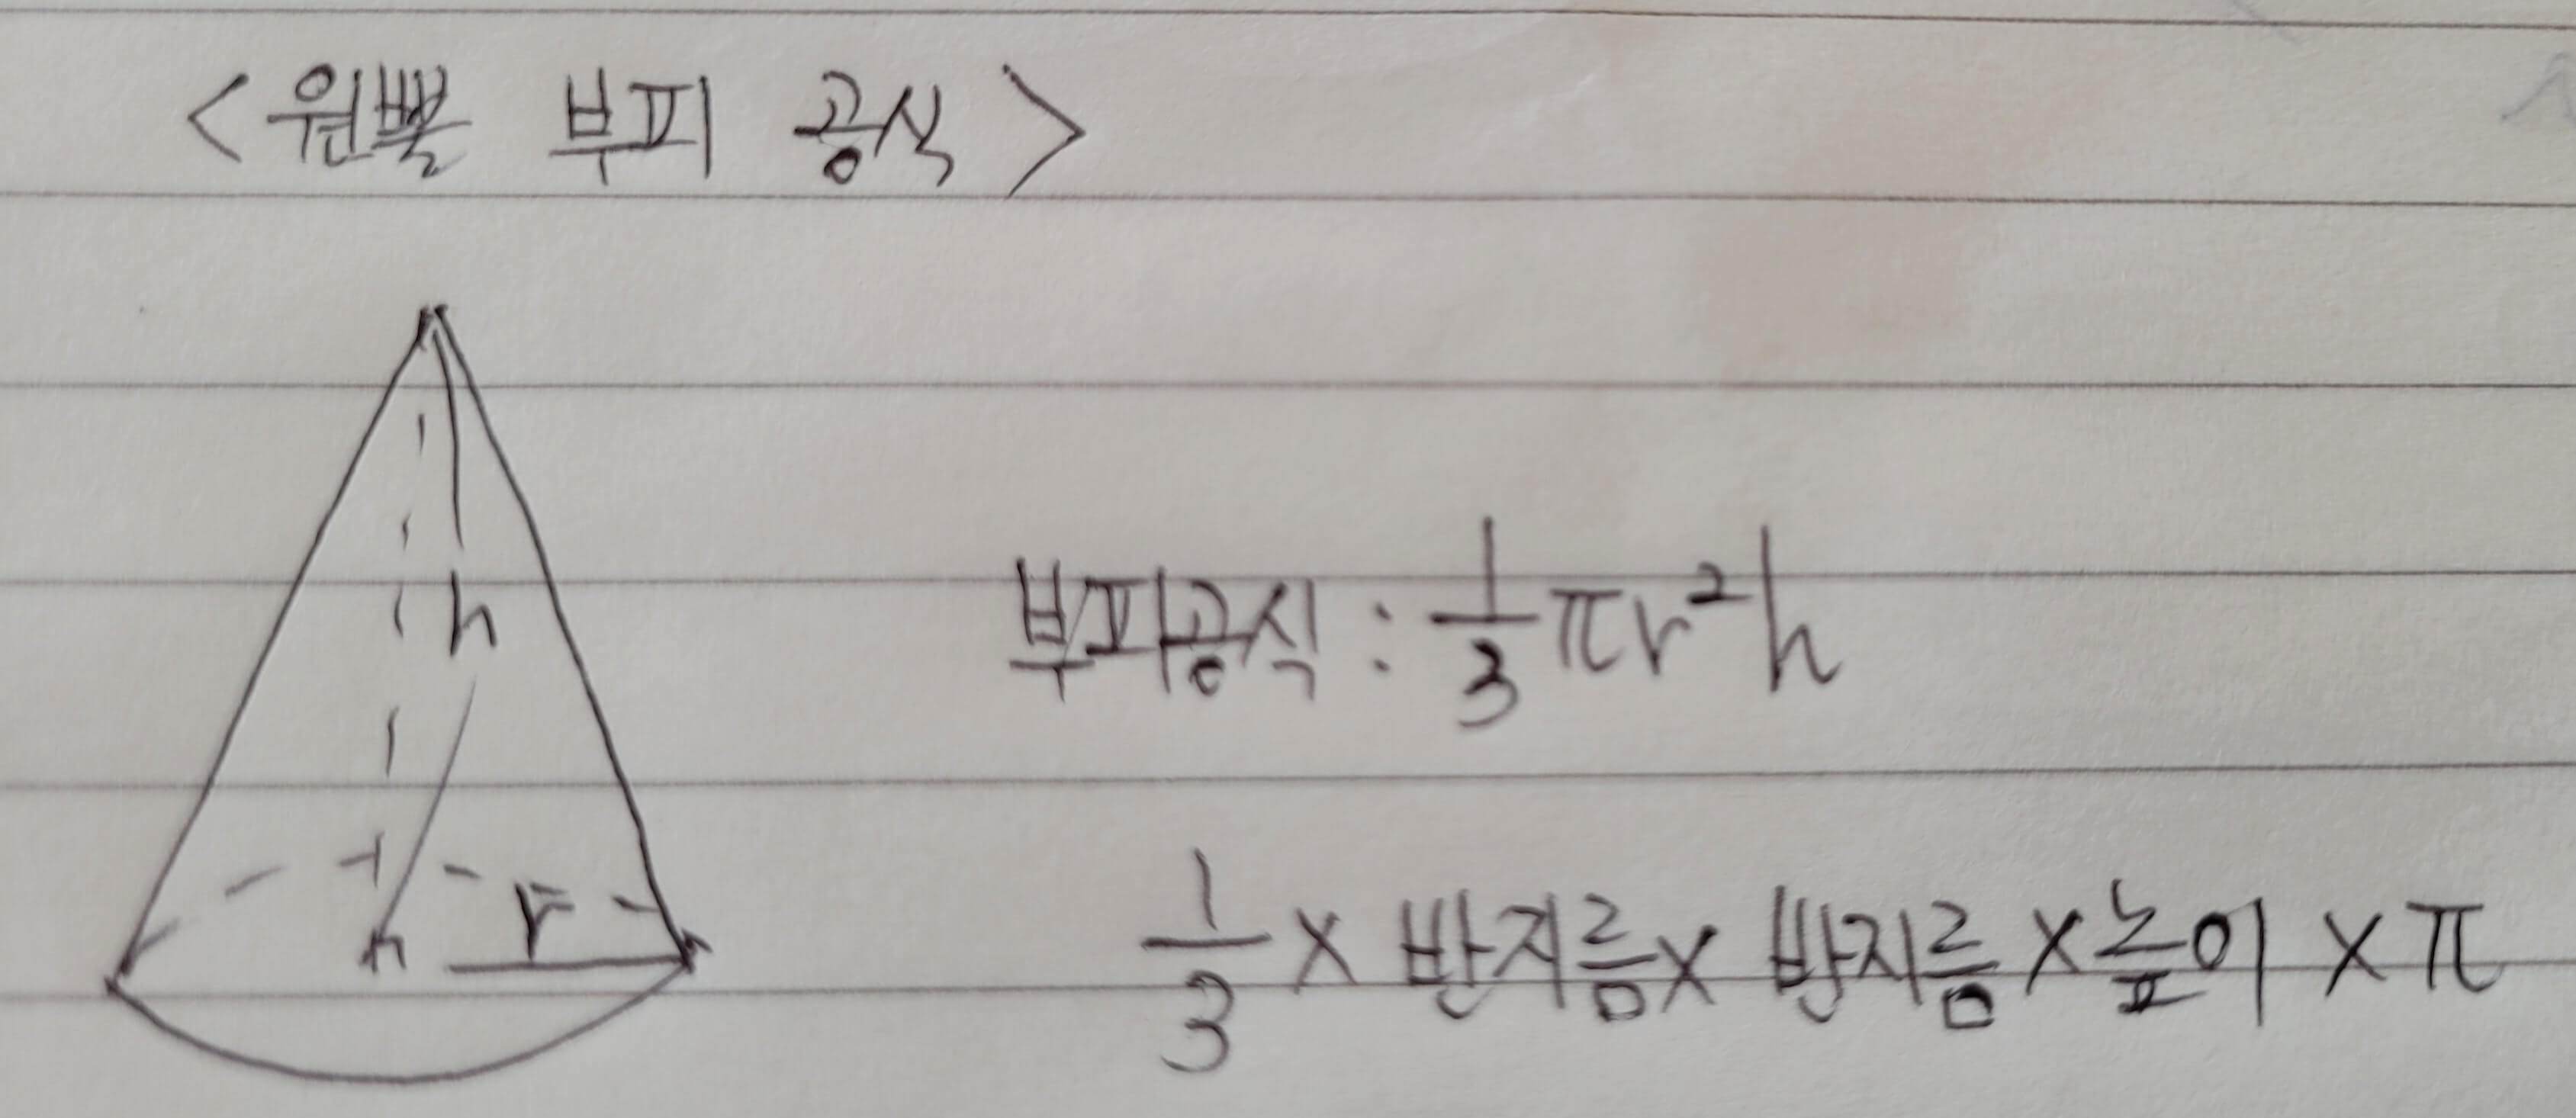 <원뿔 부피 공식>
h
부피공식 : 1/3 πr²h
r
1/3 × 반지름 × 반지름 × 높이 × π